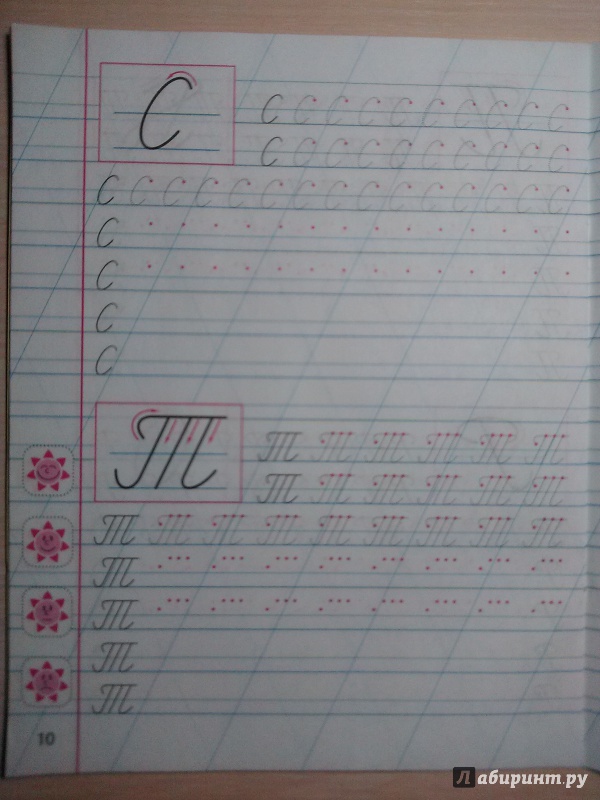 С
С С С С С С С С С С
С С С С С С С С С С
С С С С С С С С С С С С С С С
С
С
С
С
Т
Т Т Т Т Т Т
Т Т Т Т Т Т
Т Т Т Т Т Т Т Т Т
Т
Т
Т
Т
10
Лабиринт.ру